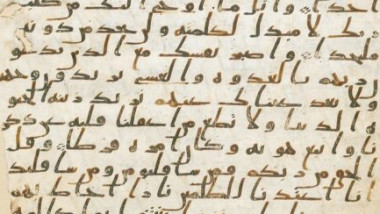 احدا واتل ما اوحي اليك من كتب
ربك لا مبدل لكلمته ولن تجد من دونه
ملتحدا واصبر نفسك مع الذين يدعو
ن ربهم بالغدوه والعشي يريدون وجهه
ولا تعد عيناك عنهم تريد زينه الحيو
ه الدنيا ولا تطع من اغفلنا قلبه عن ذكر
نا واتبع هويه وكان امره فرطا وقل
الحق من ربكم فمن شا فليومن ومن شا فليكفر
انا اعتدنا للظلمين نارا احاط بهم